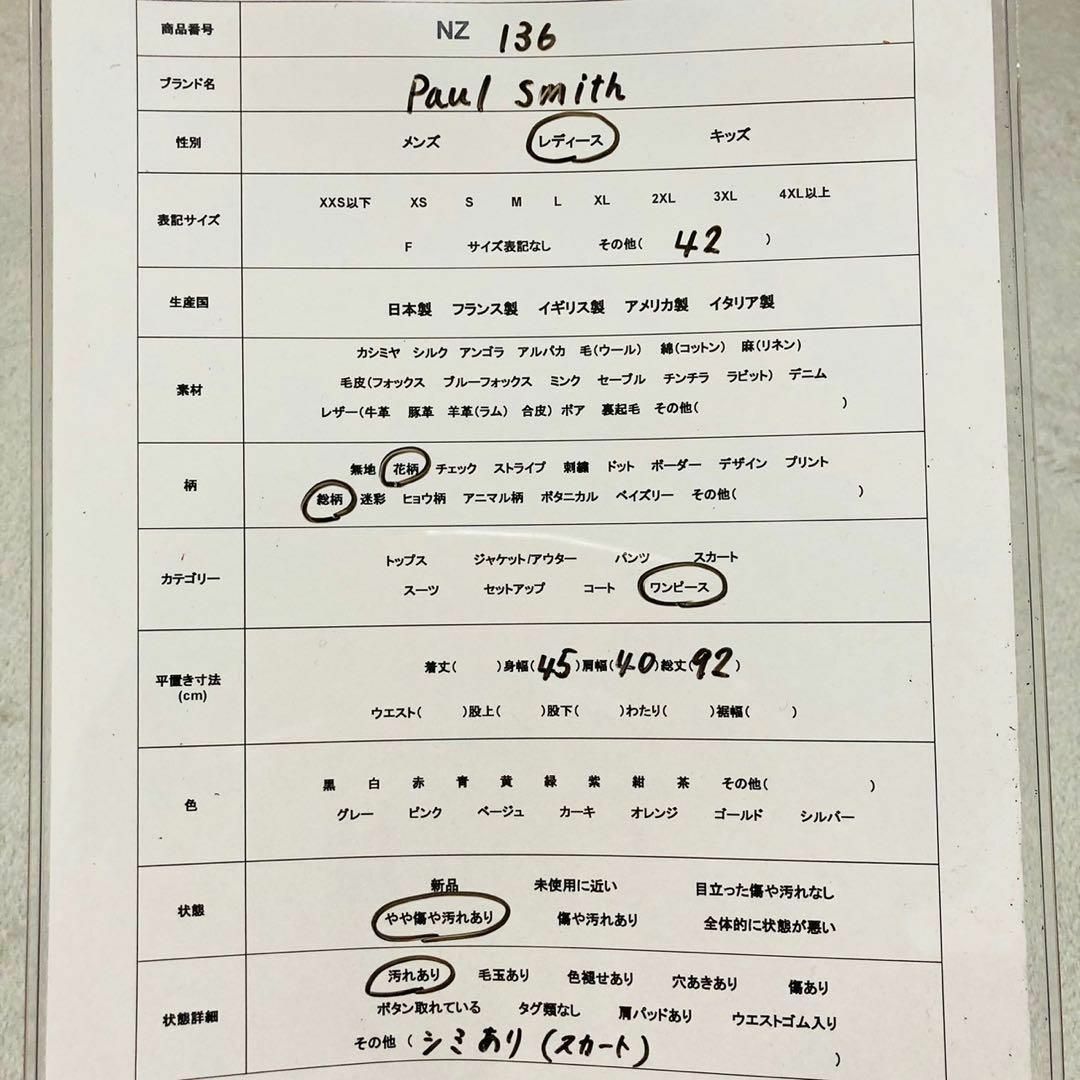 商品番号 NZ 136
ブランド名 Paul Smith
性別 メンズ レディース キッズ
表記サイズ
XXS以下 XS S M L XL 2XL 3XL 4XL以上
F サイズ表記なし その他( 42 )
生産国 日本製 フランス製 イギリス製 アメリカ製 イタリア製
素材
カシミヤ シルク アンゴラ アルパカ 毛(ウール) 綿(コットン) 麻(リネン)
毛皮(フォックス ブルーフォックス ミンク セーブル チンチラ ラビット) デニム
レザー(牛革 豚革 羊革(ラム) 合皮) ボア 裏起毛 その他( )
柄
無地 花柄 チェック ストライプ 刺繍 ドット ボーダー デザイン プリント
総柄 迷彩 ヒョウ柄 アニマル柄 ボタニカル ペイズリー その他( )
カテゴリー
トップス ジャケット/アウター パンツ スカート
スーツ セットアップ コート ワンピース
平置き寸法
(cm)
着丈( )身幅(45)肩幅(40)総丈(92)
ウエスト( )股上( )股下( )わたり( )裾幅( )
色
黒 白 赤 青 黄 緑 紫 紺 茶 その他( )
グレー ピンク ベージュ カーキ オレンジ ゴールド シルバー
状態
新品 未使用に近い 目立った傷や汚れなし
やや傷や汚れあり 傷や汚れあり 全体的に状態が悪い
状態詳細
汚れあり 毛玉あり 色褪せあり 穴あきあり 傷あり
ボタン取れている タグ類なし 肩パッドあり ウエストゴム入り
その他 ( シミあり (スカート) )